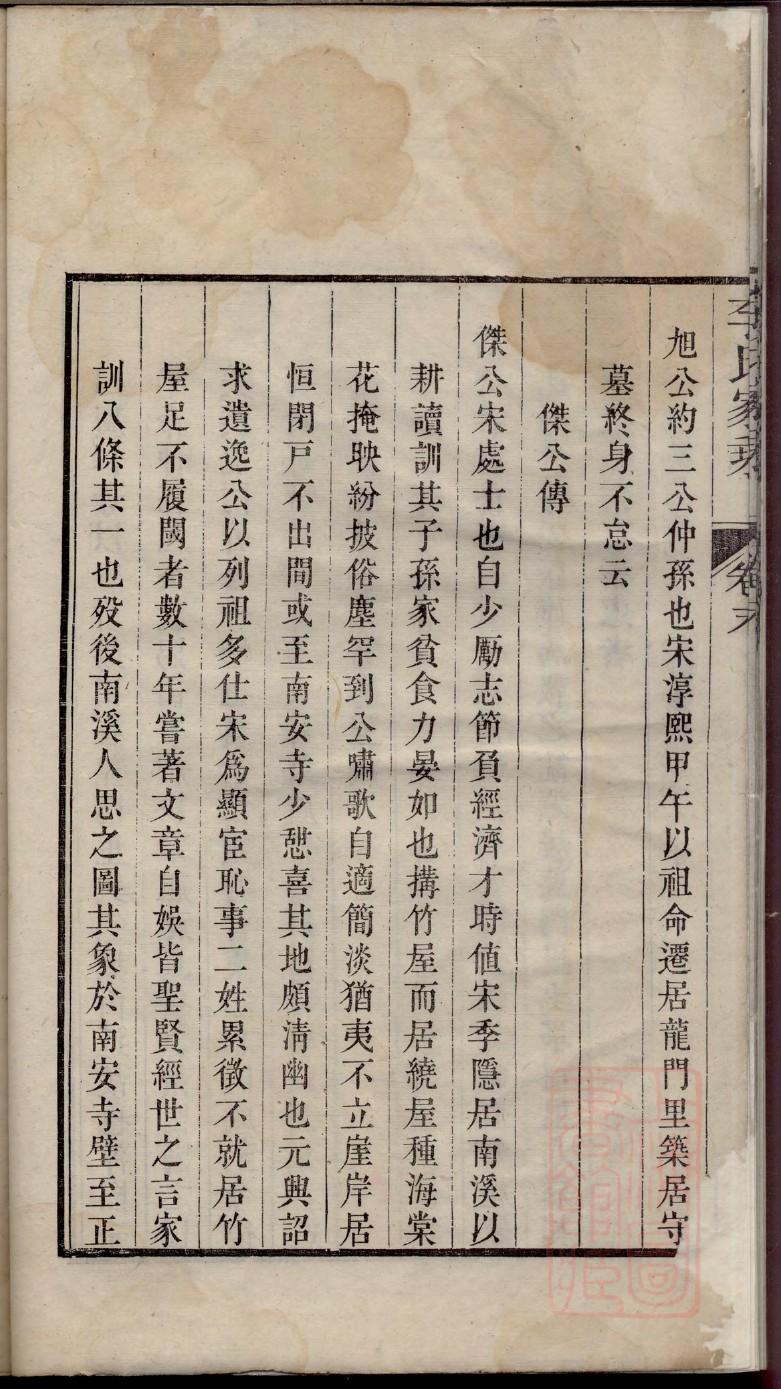 旭公約三公仲孫也宋淳熙甲午以祖命遷居龍門里築居守
墓終身不怠云
傑公傳
傑公宋處士也自少勵志節負經濟才時值宋季隱居南溪以
耕讀訓其子孫家貧食力晏如也搆竹屋而居繞屋種海棠
花掩映紛披俗塵罕到公嘯歌自適簡淡猶夷不立崖岸居
恒閉戸不出間或至南安寺少憇喜其地頗清幽也元興詔
求遺逸公以列祖多仕宋爲顯宦恥事二姓累徵不就居竹
屋足不履閾者數十年嘗著文章自娛皆聖賢經世之言家
訓八條其一也歿後南溪人思之圖其象於南安寺壁至正